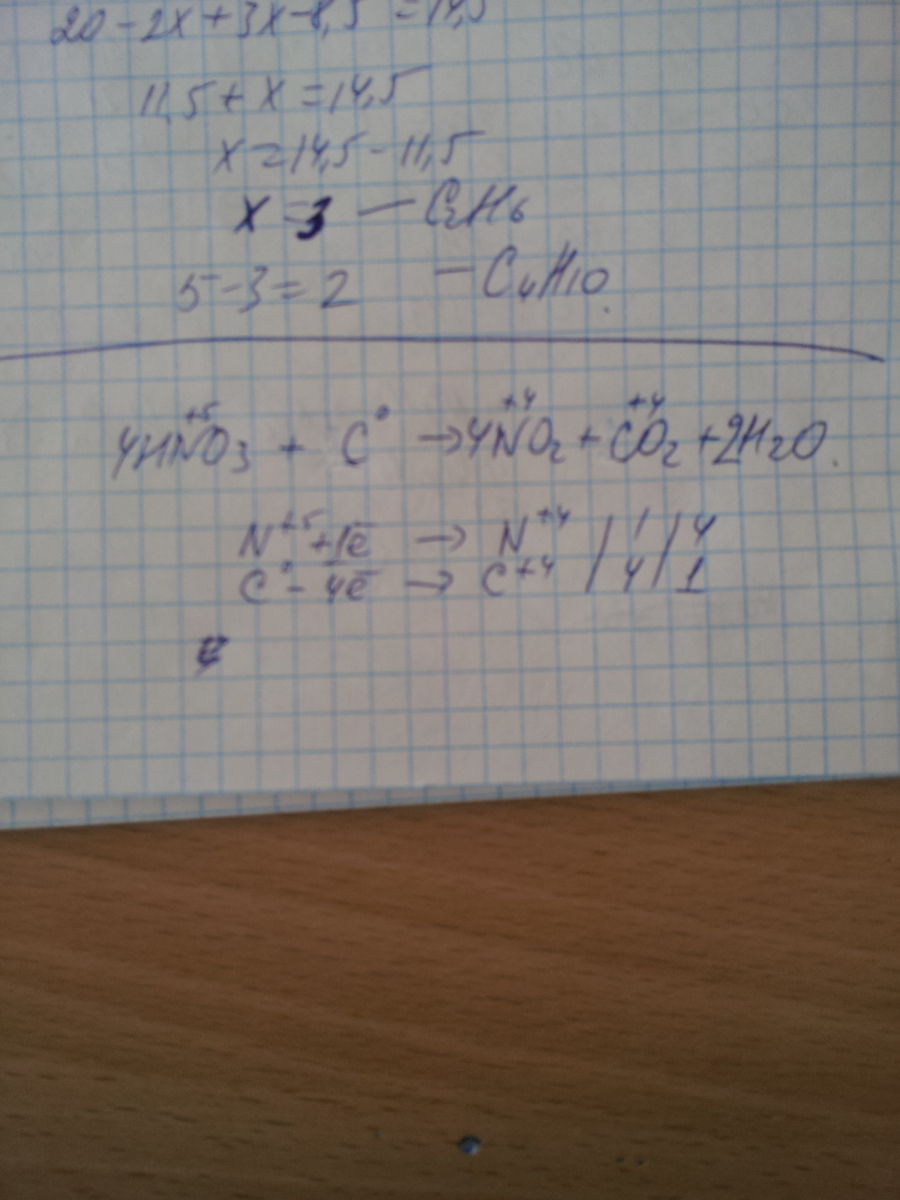 20 - 2x + 3x - 8,5 = 14,5
11,5 + x = 14,5
x = 14,5 - 11,5
x = 3 — C₂H₆
5 - 3 = 2 — C₄H₁₀.
4HN⁺⁵O₃ + C⁰ → 4N⁺⁴O₂ + C⁺⁴O₂ + 2H₂O.
N⁺⁵ + 1ē → N⁺⁴ / 1 / 4
C⁰ - 4ē → C⁺⁴ / 4 / 1